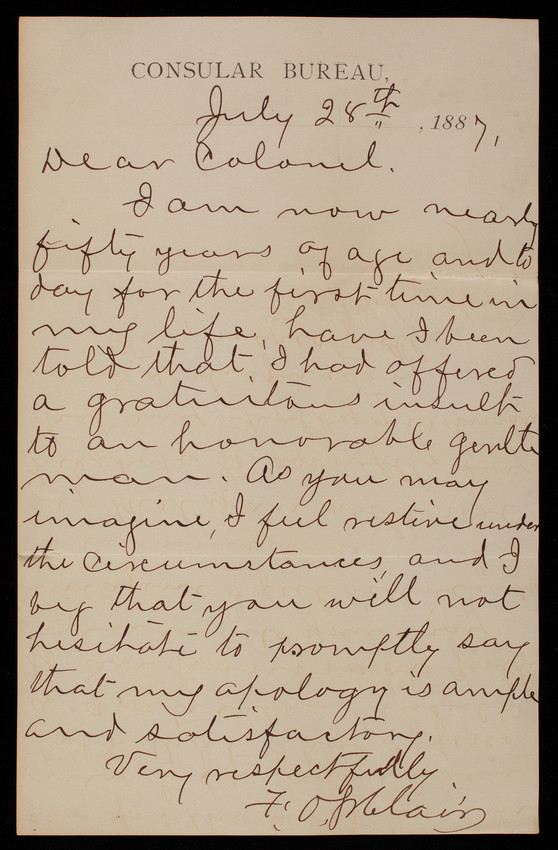 CONSULAR BUREAU,
July 28th, 1887,
Dear Colonel.
I am now nearly
fifty years of age and to
day for the first time in
my life, have I been
told that I had offered
a gratuitous insult
to an honorable gentle
man. As you may
imagine, I feel restive under
the circumstances, and I
beg that you will not
hesitate to promptly say
that my apology is ample
and satisfactory.
Very respectfully
F. O. St Clair